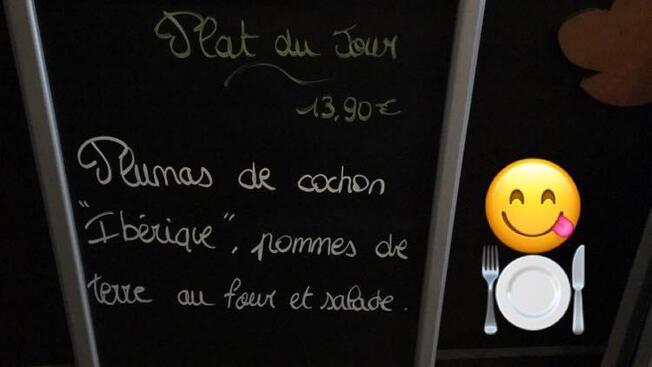 Plat du Jour
13,90€
Plumas de cochon
"Ibérique", pommes de
terre au four et salade.